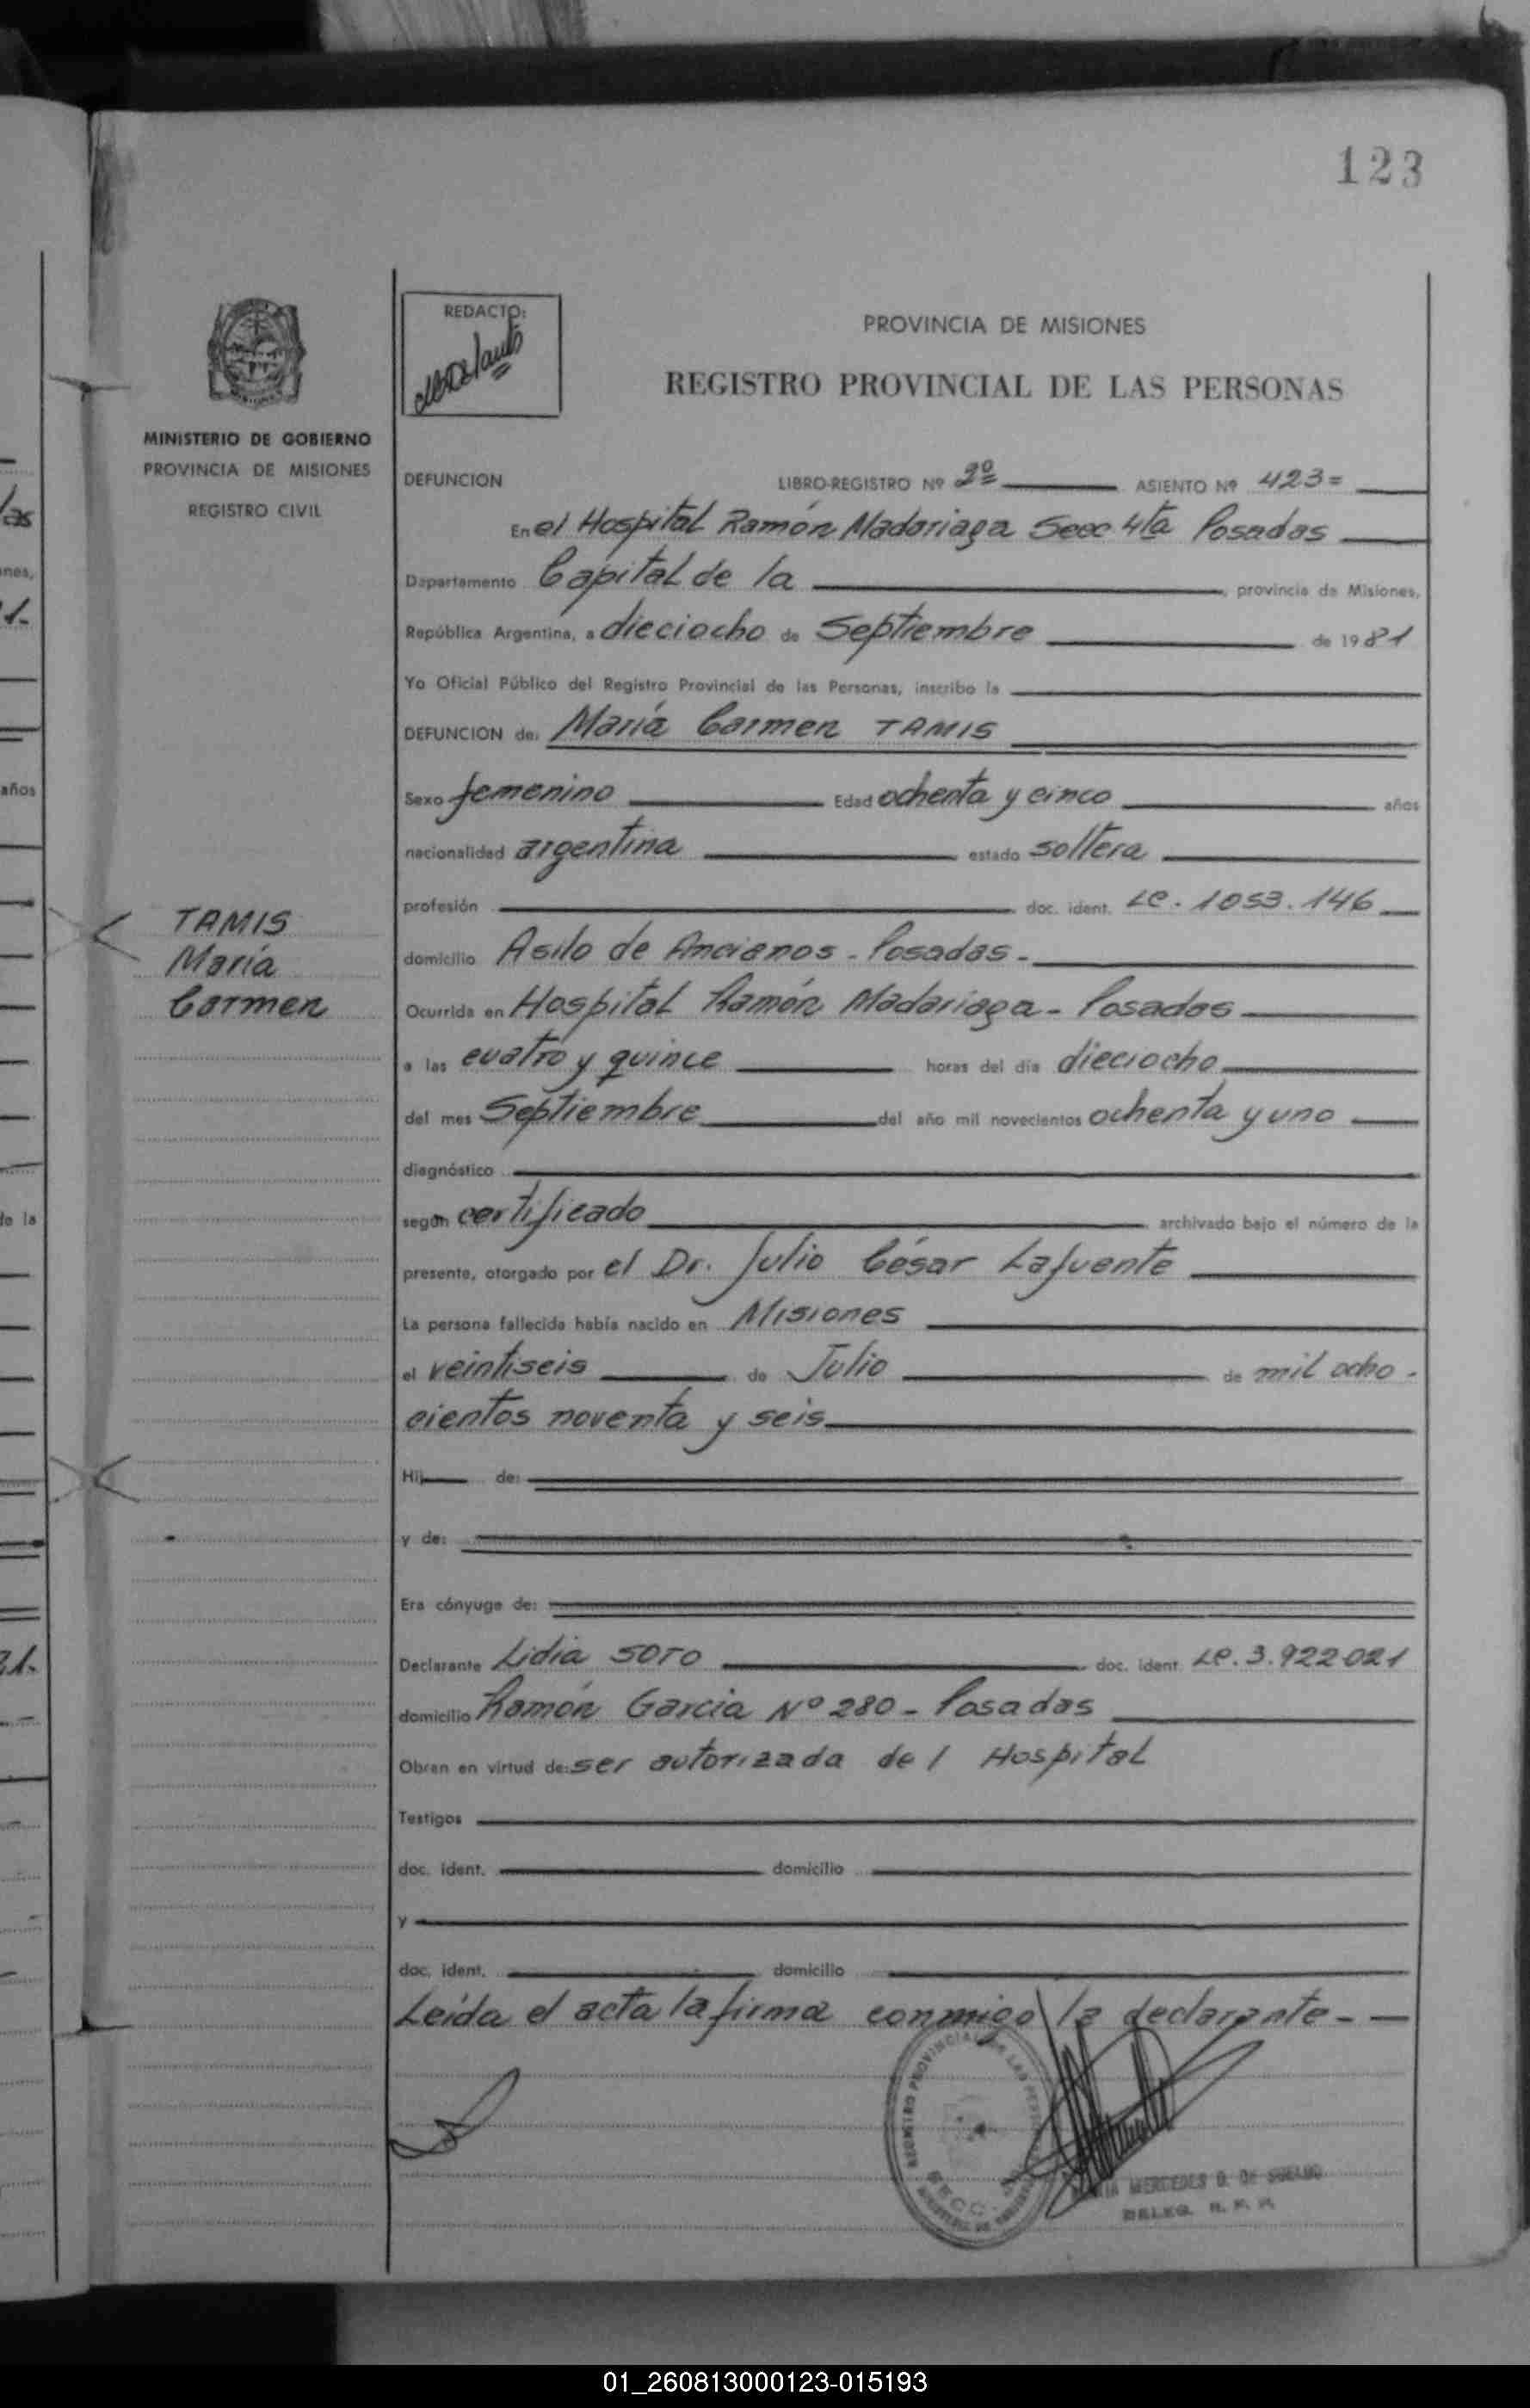 123
REDACTO:
PROVINCIA DE MISIONES
REGISTRO PROVINCIAL DE LAS PERSONAS
MINISTERIO DE GOBIERNO
PROVINCIA DE MISIONES
REGISTRO CIVIL
DEFUNCION LIBRO-REGISTRO Nº 2º ASIENTO Nº 423=
En el Hospital Ramón Madariaga Secc 4ta Posadas
Departamento Capital de la , provincia de Misiones,
República Argentina, a dieciocho de Septiembre de 1981
Yo Oficial Público del Registro Provincial de las Personas, inscribo la
DEFUNCION de: María Carmen TAMIS
Sexo femenino Edad ochenta y cinco años
nacionalidad argentina estado soltera
profesión doc. ident. LC. 1053.146
TAMIS
María
Carmen
domicilio Asilo de Ancianos - Posadas -
Ocurrida en Hospital Ramón Madariaga - Posadas
a las cuatro y quince horas del día dieciocho
del mes Septiembre del año mil novecientos ochenta y uno
diagnóstico
según certificado archivado bajo el número de la
presente, otorgado por el Dr. Julio César Lafuente
La persona fallecida había nacido en Misiones
el veintiseis de Julio de mil ocho-
cientos noventa y seis
Hij de:
y de:
Era cónyuge de:
Declarante Lidia SOTO doc. ident. LC. 3.922.021
domicilio Ramón Garcia Nº 280 - Posadas
Obran en virtud de: ser autorizada del Hospital
Testigos
doc. ident. domicilio
y
doc. ident. domicilio
Leída el acta la firma conmigo la declarante - —
MERCEDES D. DE
DELEG. R. P. P.
años
01_260813000123-015193